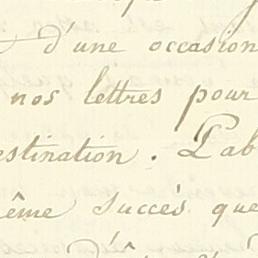 d'une occasion
nos lettres pour
estination. L'ab
même succès que